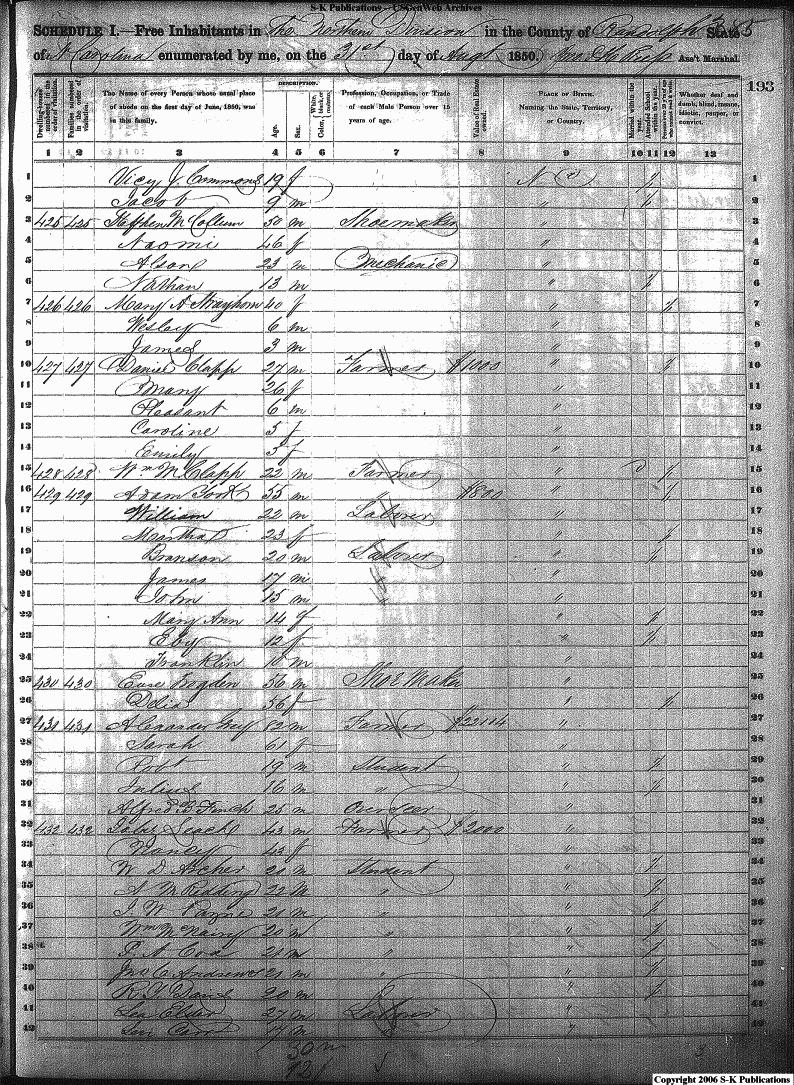 S-K Publications - USGenWeb Archives
SCHEDULE I.—Free Inhabitants in The Northern Division in the County of Randolph State 385
of N Carolina enumerated by me, on the 31st day of Augt 1850. Ass't Marshal.
193
Dwelling-houses numbered in the order of visitation.
Families numbered in the order of visitation.
The Name of every Person whose usual place of abode on the first day of June, 1850, was in this family.
DESCRIPTION.
Age.
Sex.
Color, White, black, or mulatto.
Profession, Occupation, or Trade of each Male Person over 15 years of age.
Value of Real Estate owned.
PLACE OF BIRTH.
Naming the State, Territory, or Country.
Married within the year.
Attended School within the year.
Whether deaf and dumb, blind, insane, idiotic, pauper, or convict.
1 2 3 4 5 6 7 8 9 10 11 12 13
1 Vicy J. Commons 19 f N C / 1
2 Jacob 9 m " / 2
3 425 425 Stephen McCollum 50 m Shoemaker " 3
4 Naomi 46 f " 4
5 Alson 23 m Mechanic " 5
6 Nathan 13 m " / 6
7 426 426 Mary A 40 f " / 7
8 Wesley 6 m " 8
9 James 3 m " 9
10 427 427 Daniel Clapp 27 m Farmer $1000 " / 10
11 Mary 26 f " 11
12 Pleasant 6 m " 12
13 Caroline 5 f " 13
14 Emily 3 f " 14
15 428 428 Wm M Clapp 22 m Farmer " / 15
16 429 429 Adam York 55 m " $800 " / 16
17 William 22 m Laborer " 17
18 Martha 23 f " / 18
19 Branson 20 m Laborer " / 19
20 James 17 m " " 20
21 John 15 m " " 21
22 Mary Ann 14 f " / 22
23 12 f " / 23
24 Franklin 10 m " 24
25 430 430 Bogden 56 m Shoe Maker " 25
26 Delia 56 f " / 26
27 431 431 Alexander Gray 82 m Farmer " 27
28 Sarah 61 f " 28
29 Robt 19 m Student " / 29
30 Julius 16 m " " / 30
31 Alfred B Finch 25 m Overseer " 31
32 432 432 Leach 43 m Farmer $2000 " 32
33 Nancy 43 f " 33
34 W D Archer 21 m Student " / 34
35 A M Redding 22 m " " / 35
36 J W Payne 21 m " " / 36
37 Wm McNairy 20 m " " / 37
38 P A Cox 21 m " " / 38
39 Jno C Andrews 21 m " " / 39
40 R F Davis 20 m " / 40
41 Elder 27 m Laborer " 41
42 17 m " 42
30 m
12 f
Copyright 2006 S-K Publications